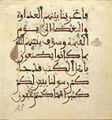 فأغرينا بينهم العداوة
والبغضاء إلى يوم القيمة
وسوف ينبئهم الله بما
كانوا يصنعون يأهل
الكتب قد جاءكم
رسولنا يبين لكم
كثيرا مما كنتم تخفون